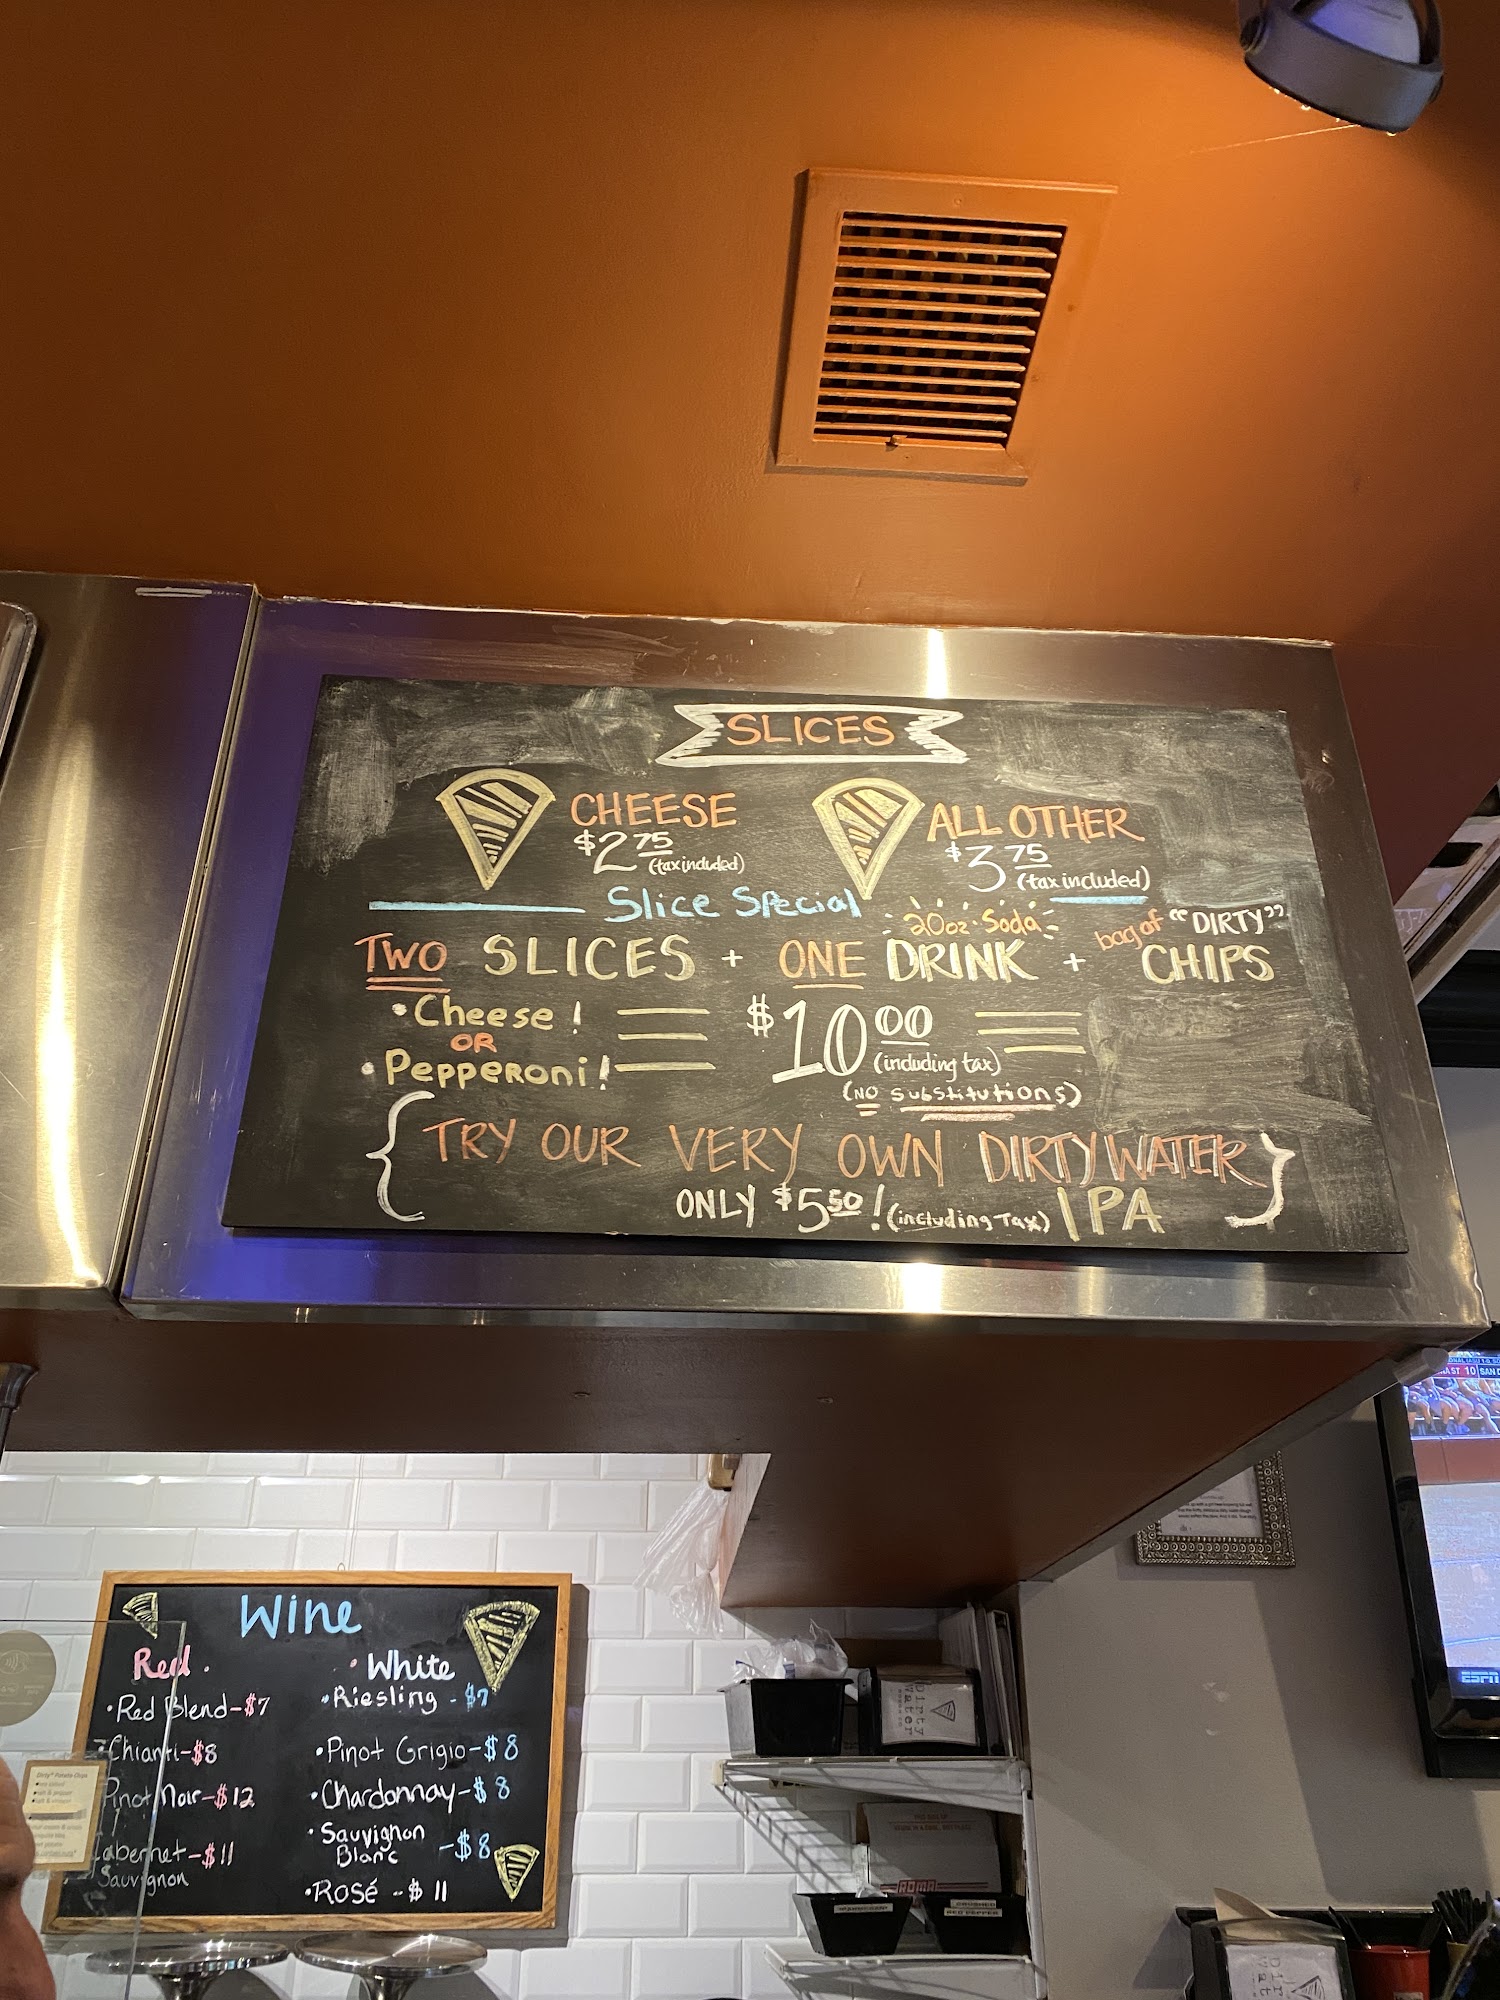 SLICES
CHEESE
$2.75
(tax included)
ALL OTHER
$3.75
(tax included)
Slice Special
20oz. Soda
bag of "DIRTY"
TWO SLICES + ONE DRINK + CHIPS
• Cheese!
OR
• Pepperoni!
$10.00
(including tax)
(NO substitutions)
TRY OUR VERY OWN DIRTY WATER
ONLY $5.50! (including Tax) IPA
Wine
Red
• Red Blend-$7
• Chianti-$8
Pinot Noir-$12
Cabernet-$11
Sauvignon
• White
• Riesling - $7
• Pinot Grigio-$8
• Chardonnay-$8
• Sauvignon
Blanc -$8
• Rosé - $11
Dirty
Water
ROMA
CRUSHED
RED PEPPER
ESPN